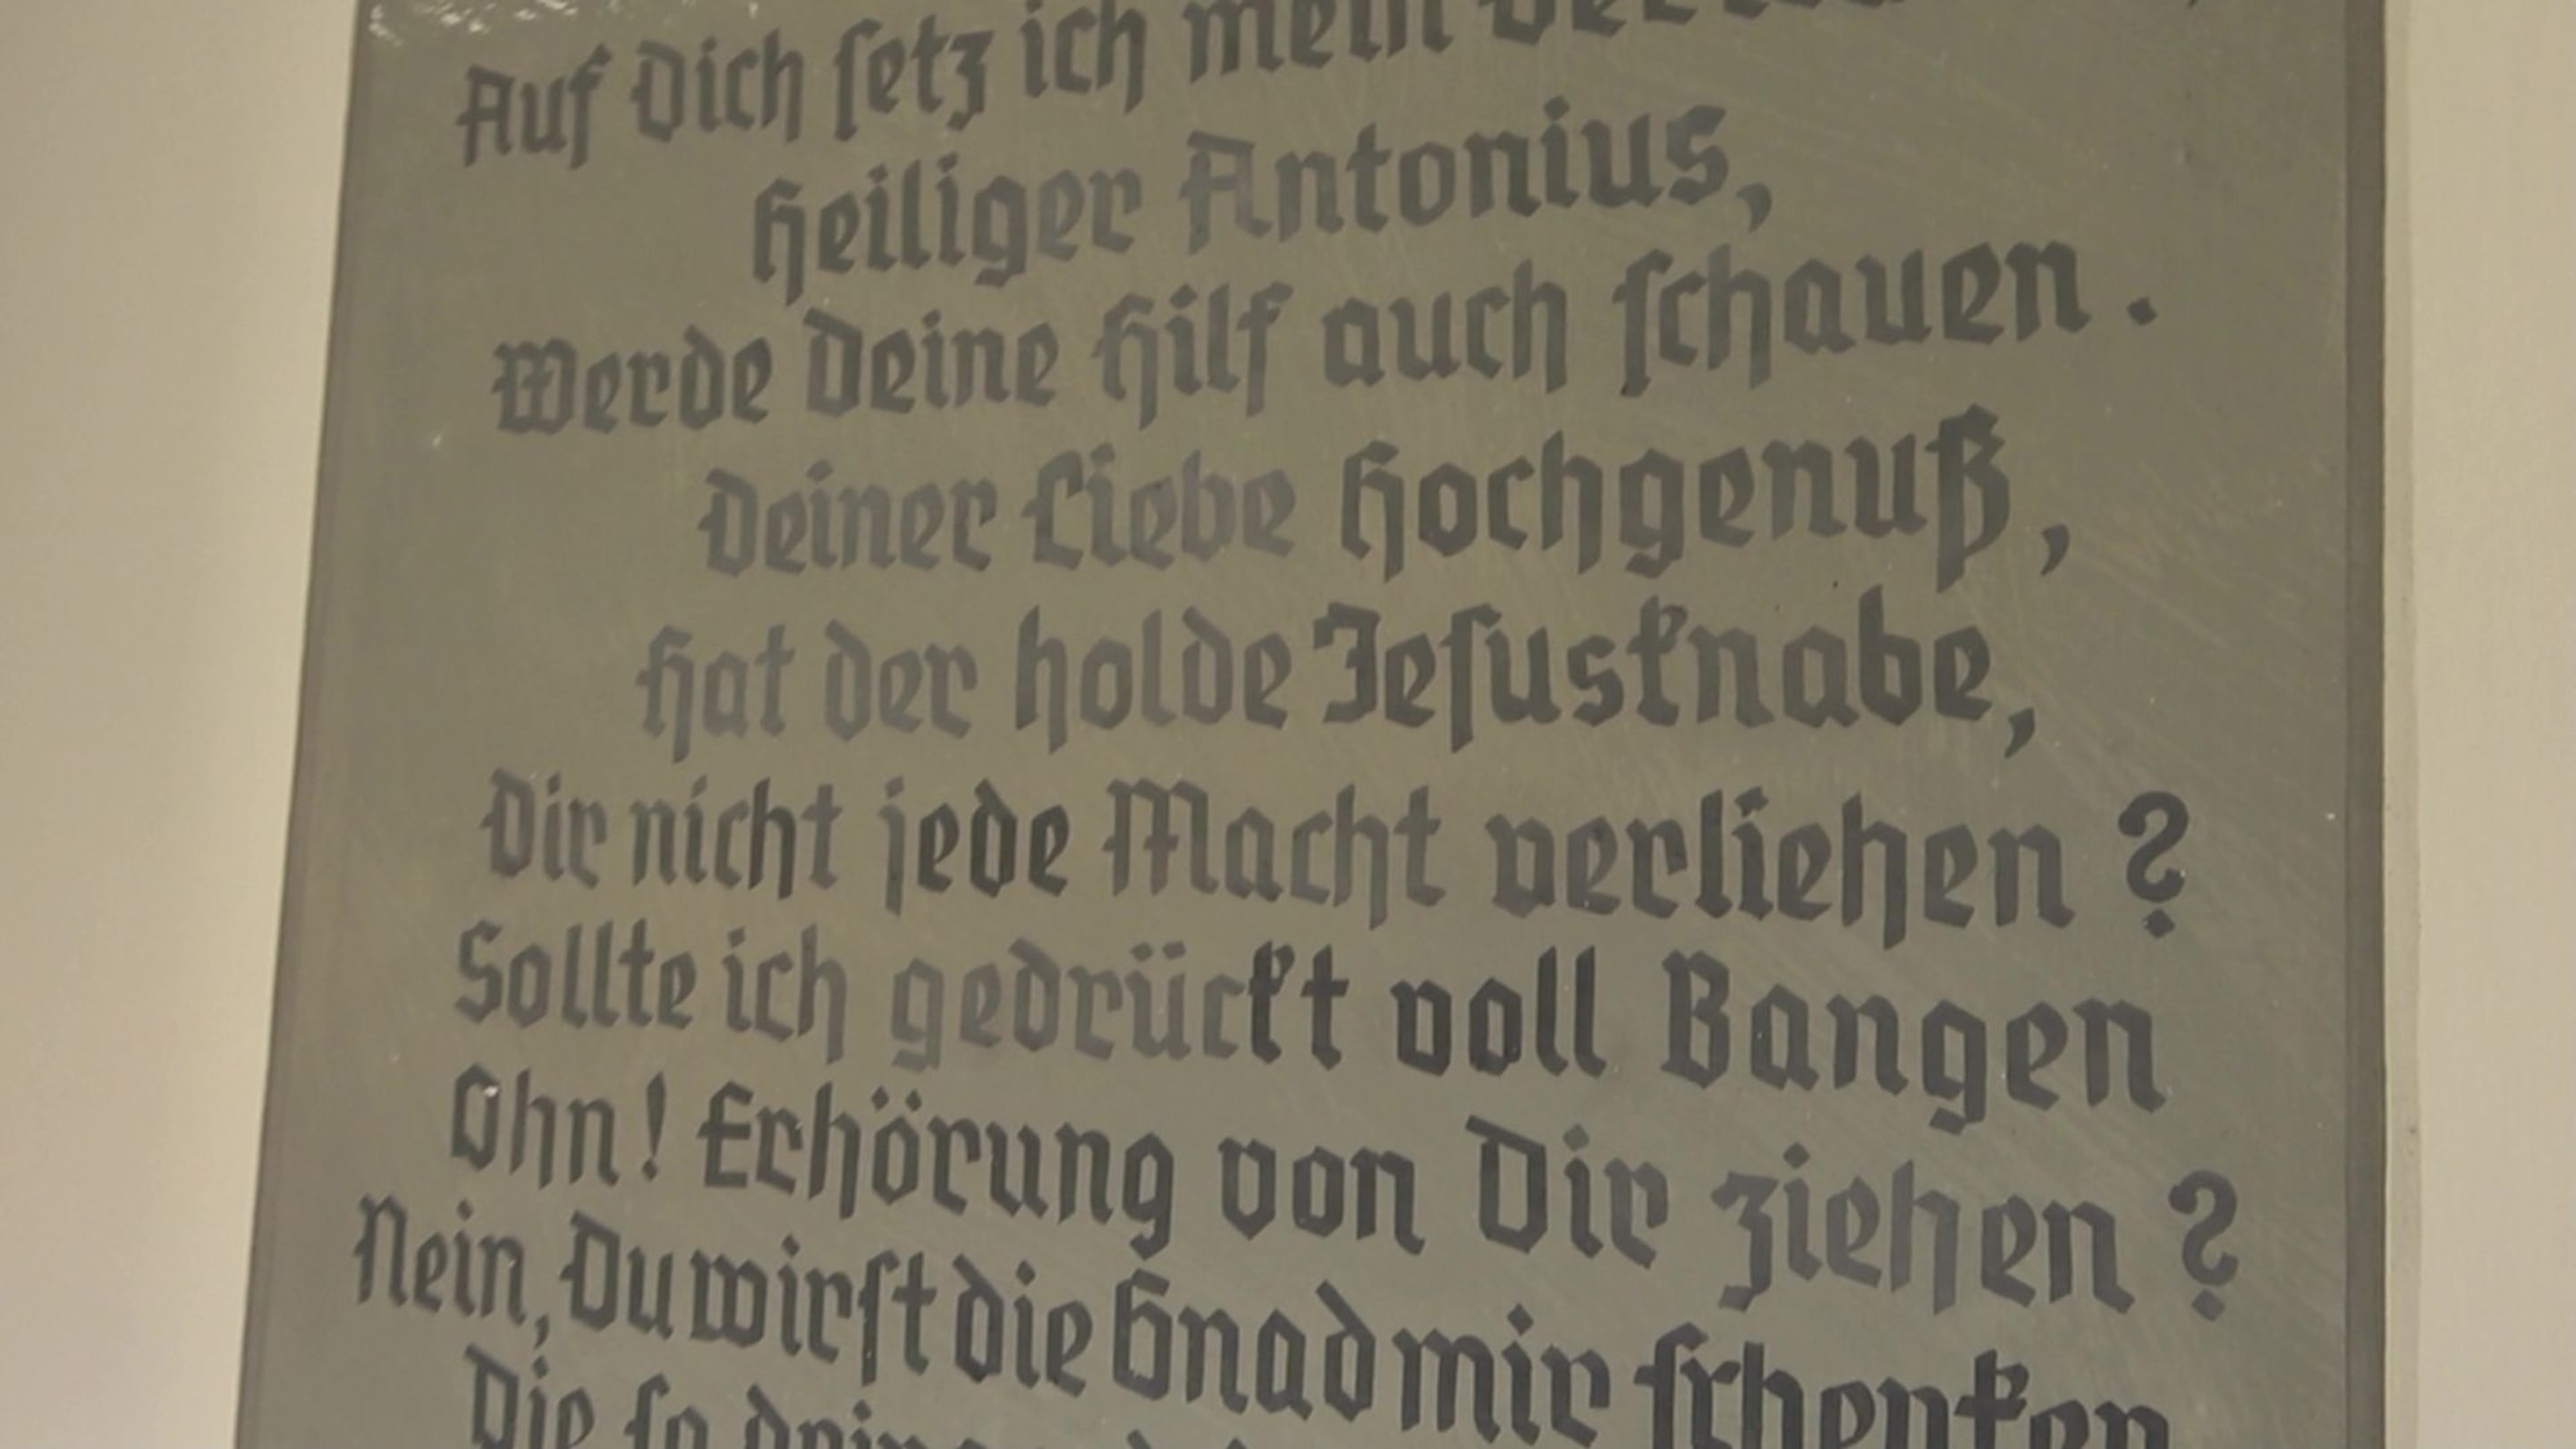 Auf Dich setz ich mein
Heiliger Antonius,
Werde Deine Hilf auch schauen.
Deiner Liebe Hochgenuß,
Hat der holde Jesusknabe,
Dir nicht jede Macht verliehen?
Sollte ich gedrückt voll Bangen
Ohn! Erhörung von Dir ziehen?
Nein, Du wirst die Gnad mir schenken
Die so